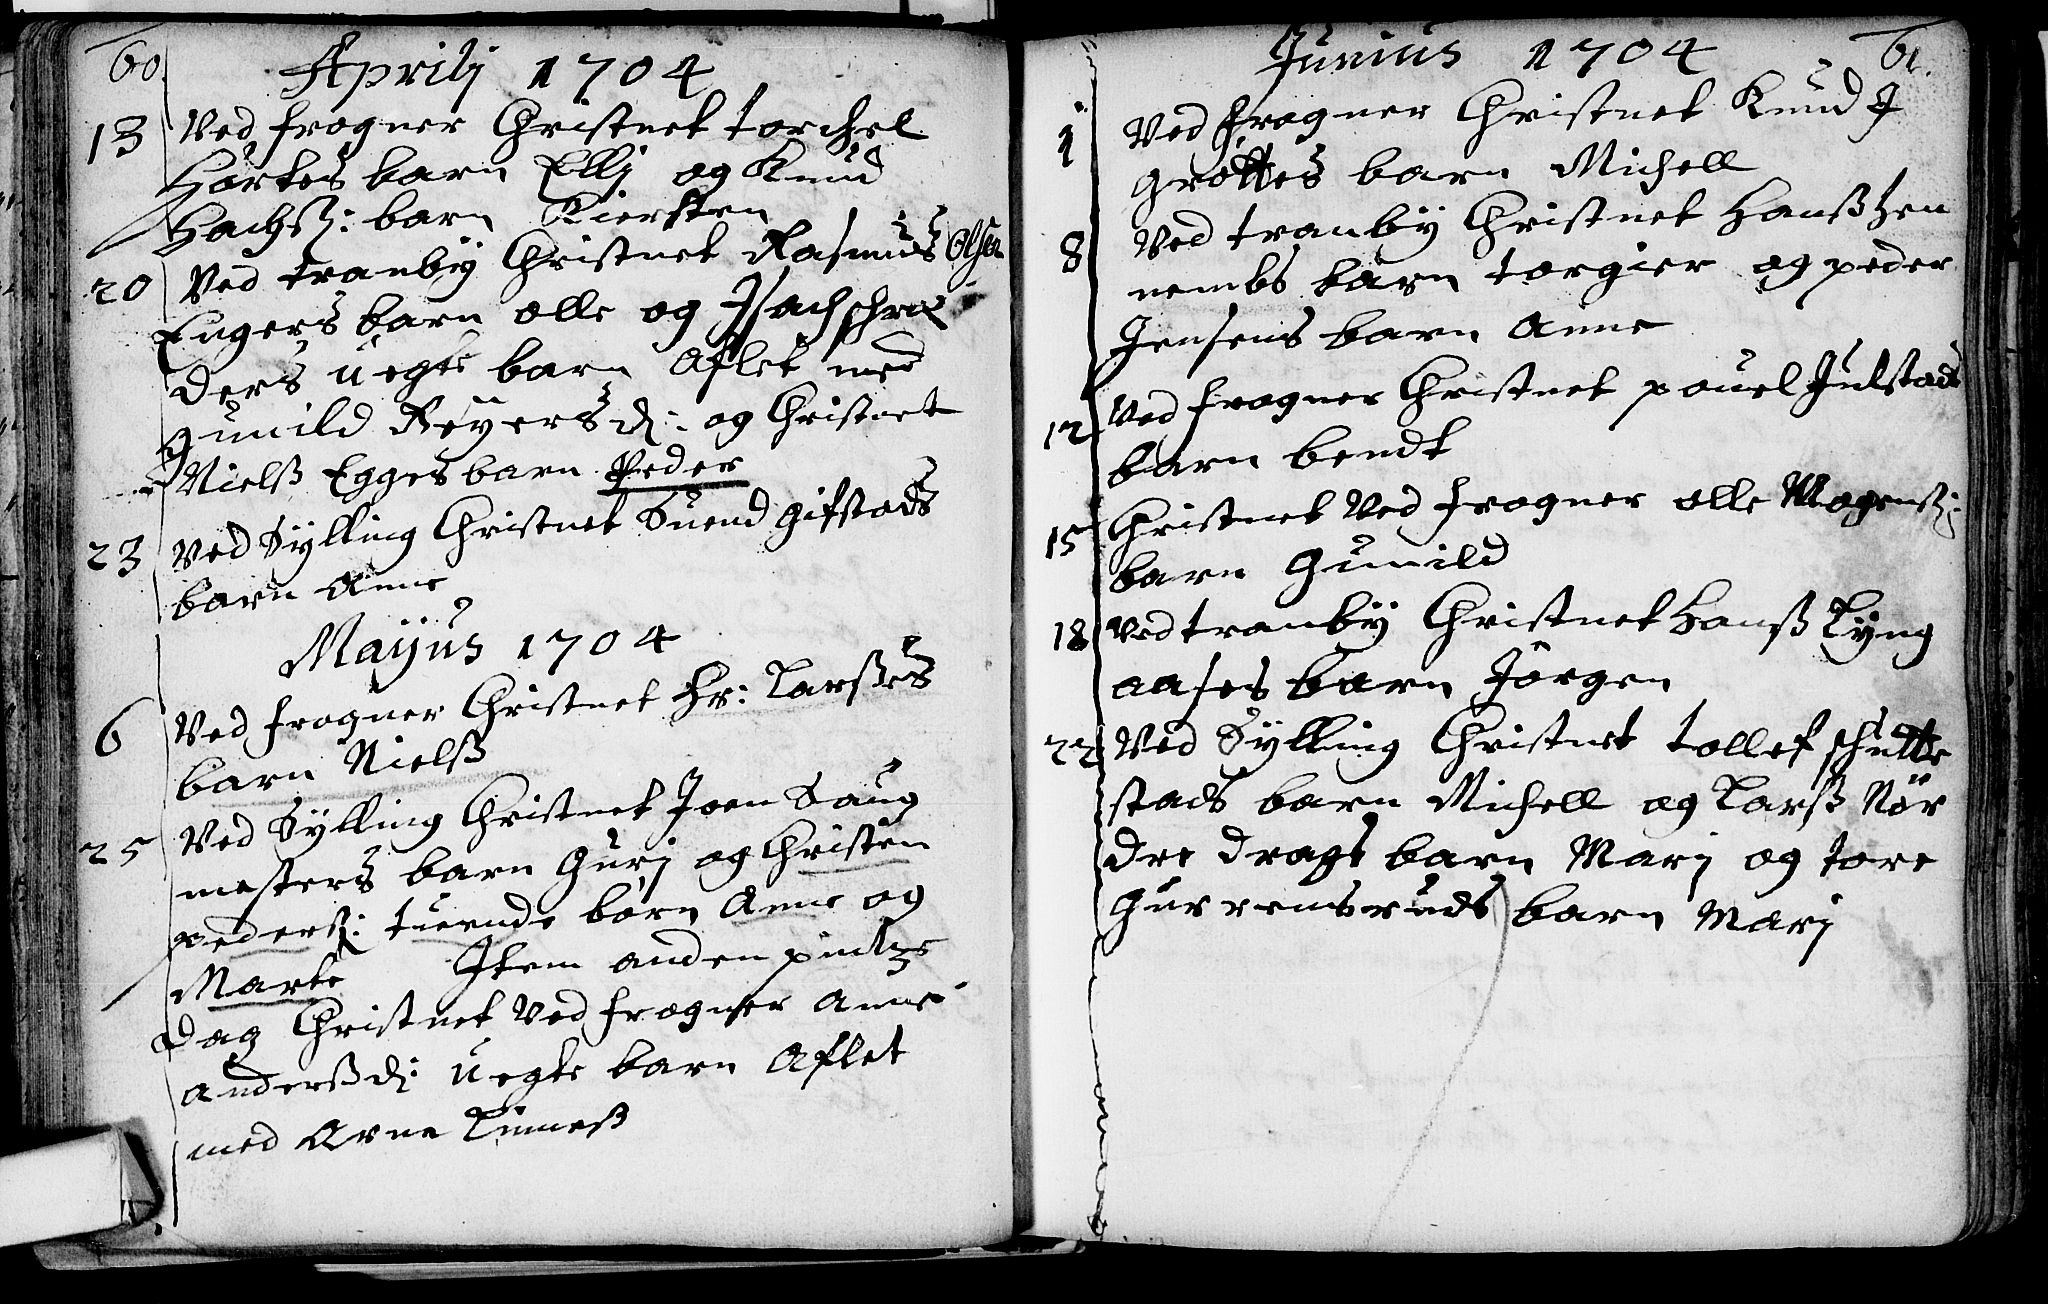 60
Aprilj 1704
13 Ved frogner Christnet torchel
Hørtes barn Ellj og Knud
Hachß: barn Kiersten
20 Ved tranby Christnet Rasmus Olsen
Engers barn olle og Isach schrø
ders uegte barn Aflet med
gunild Reyersd: og Christnet
Nielß Egges barn Peder
23 Ved Sylling Christnet Suend gifstads
barn Anne
Mayus 1704
6 Ved frogner Christnet Hr: Larßes
barn Nielß
25 Ved Sylling Christnet Joen Saug
mesters barn Gurj og Christen
pederß: tuende børn Anne og
Marte Item anden pintze
Dag Christnet Ved frogner Anne
anderßd: uegte barn Aflet
med Arne Linneß
61.
Junius 1704
1 Ved frogner Christnet Knud J
grøttes barn Michell
8 Ved tranby Christnet Hanß hen
nembs barn torgier og peder
Jensens barn Anne
12 Ved frogner Christnet pouel Julstads
barn bendt
15 Christnet Ved frogner olle Mogenß:
barn Gunild
18 Ved tranby Christnet Hanß Lyng
aases barn Jørgen
22 Ved Sylling Christnet tollef schutte
stads barn Michell og Larß Nør
dre drags barn Marj og tore
Gurrensruds barn Marj